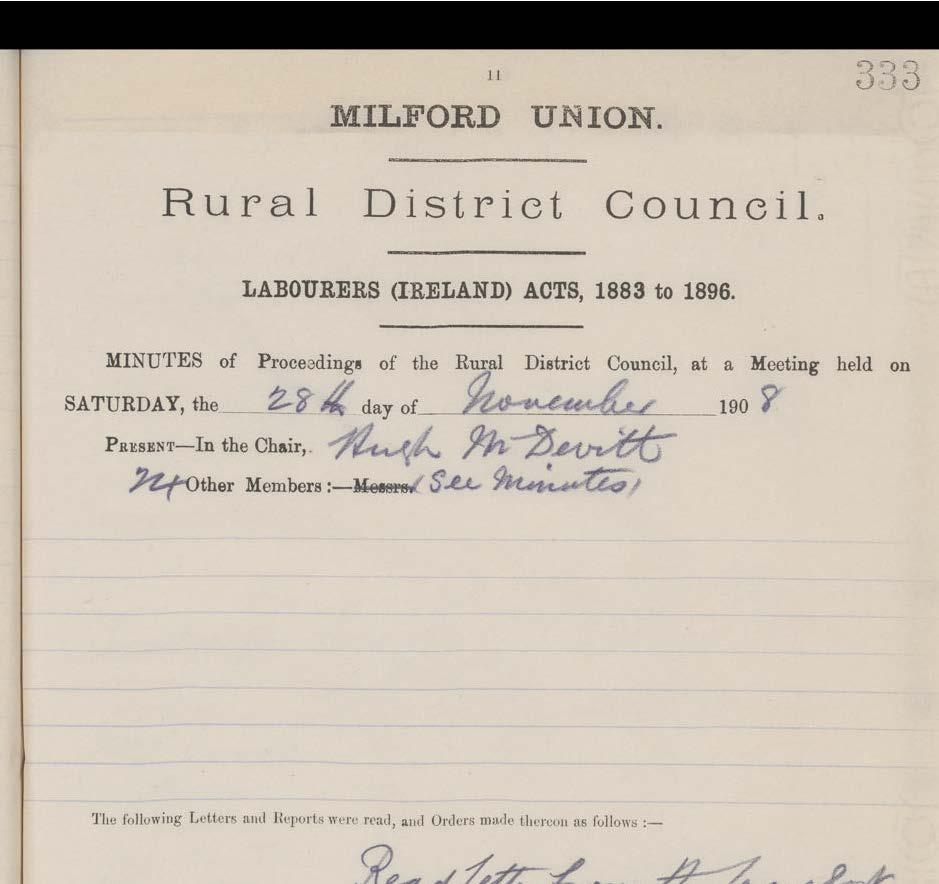 11
333
MILFORD UNION.
Rural District Council.
LABOURERS (IRELAND) ACTS, 1883 to 1896.
MINUTES of Proceedings of the Rural District Council, at a Meeting held on
SATURDAY, the 28th day of November 1908
PRESENT—In the Chair, Hugh McDevitt
24 Other Members :—Messrs. (See Minutes)
The following Letters and Reports were read, and Orders made thereon as follows :—
Read letter from